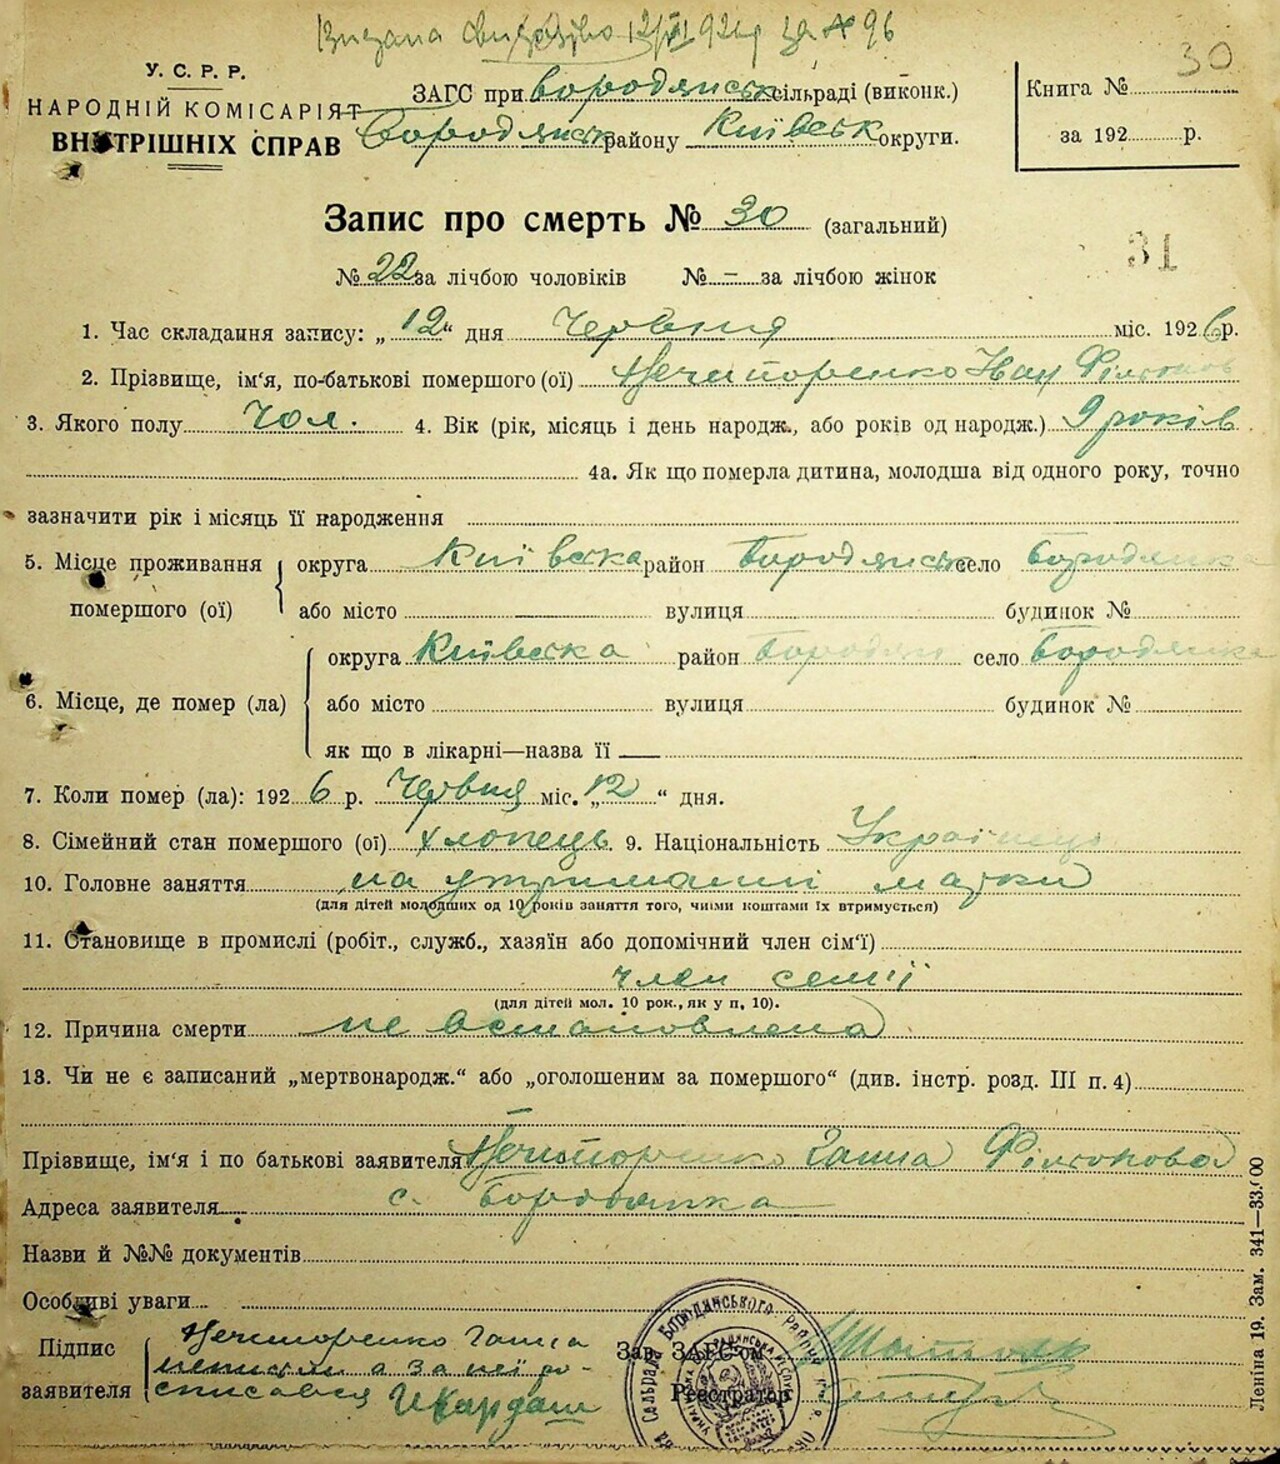 Видана 12/VI 926 р за № 96
30
У. С. Р. Р.
НАРОДНІЙ КОМІСАРІЯТ
ВНУТРІШНІХ СПРАВ
ЗАГС при Бородянськ сільраді (виконк.)
Бородянськ району Київськ округи.
Книга №
за 192 р.
Запис про смерть № 30 (загальний)
31
№ 22 за лічбою чоловіків № – за лічбою жінок
1. Час складання запису: „12“ дня Червня міс. 1926 р.
2. Прізвище, ім‘я, по-батькові помершого (ої) Нечипоренко Іван
3. Якого полу чол. 4. Вік (рік, місяць і день народж., або років од народж.) 9 років
4а. Як що померла дитина, молодша від одного року, точно
зазначити рік і місяць її народження
5. Місце проживання помершого (ої) округа Київська район Бородянськ село Бородянка
або місто вулиця будинок №
6. Місце, де помер (ла) округа Київська район Бородян село Бородянка
або місто вулиця будинок №
як що в лікарні—назва її —
7. Коли помер (ла): 1926 р. Червня міс. „12“ дня.
8. Сімейний стан помершого (ої) хлопець 9. Національність Українець
10. Головне заняття на утриманні матки
(для дітей молодших од 10 років заняття того, чиїми коштами їх втримується)
11. Становище в промислі (робіт., служб., хазяїн або допомічний член сім‘ї)
член семії
(для дітей мол. 10 рок., як у п. 10).
12. Причина смерти не встановлена
13. Чи не є записаний „мертвонародж.“ або „оголошеним за помершого“ (див. інстр. розд. III п. 4)
–
Прізвище, ім‘я і по батькові заявителя Нечипоренко Ганна
Адреса заявителя с. Бородянка
Назви й №№ документів
Особливі уваги
Підпис заявителя Нечипоренко Ганна
неписьм а за неї ро-
списався Кардаш
Зав. ЗАГС‘ом
Реєстратор
Сільрада Бородянського Району
Леніна 19. Зам. 341—33.000